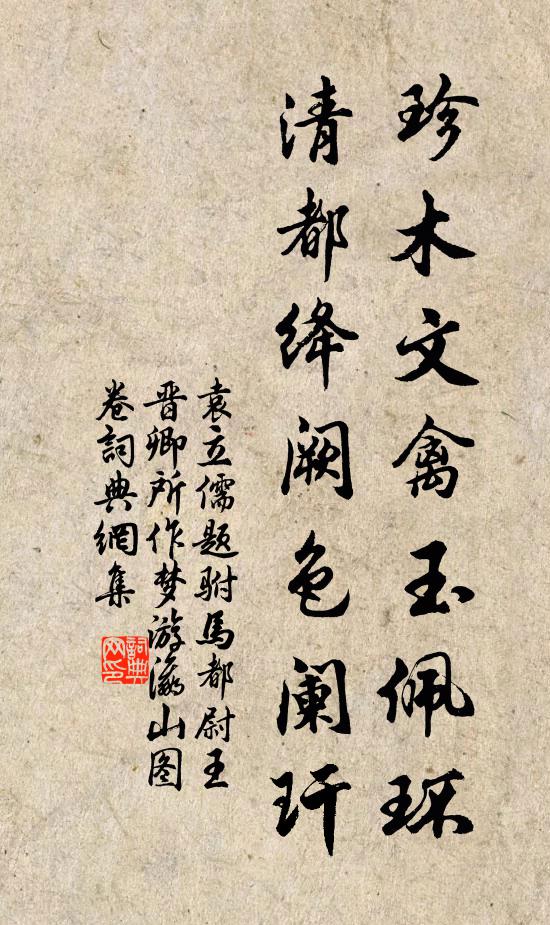 珍木文禽玉佩环
清都绛阙色阑玕
袁立儒题駙馬都尉王
晋卿所作梦游瀛山图
卷詞典網集
詞典
网印